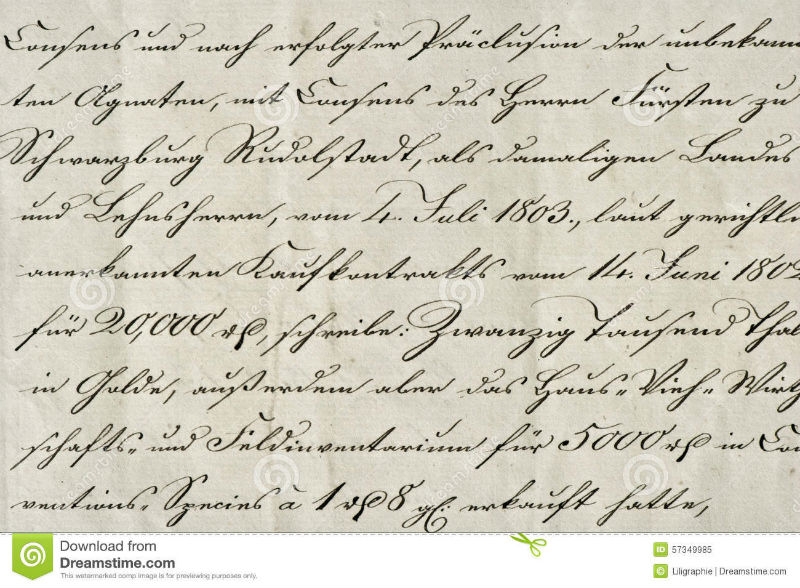 Consens und nach erfolgter Präclusion der unbekann
ten Agnaten, mit Consens des Herrn Fürsten zu
Schwarzburg Rudolstadt, als damaligen Landes
und Lehnsherrn, vom 4. Juli 1803., laut gerichtli
anerkannten Kaufkontrakts vom 14. Juni 1802
für 20,000 rℓ, schreibe: Zwanzig Tausend Thal
in Golde, außerdem aber das Haus= Vieh= Wirth
schafts= und Feldinventarium für 5000 rℓ in Con
ventions= Species à 1 rℓ 8 gℓ. erkauft hatte,
Download from
Dreamstime.com
This watermarked comp image is for previewing purposes only.
ID 57349985
© Liligraphie | © Dreamstime.com